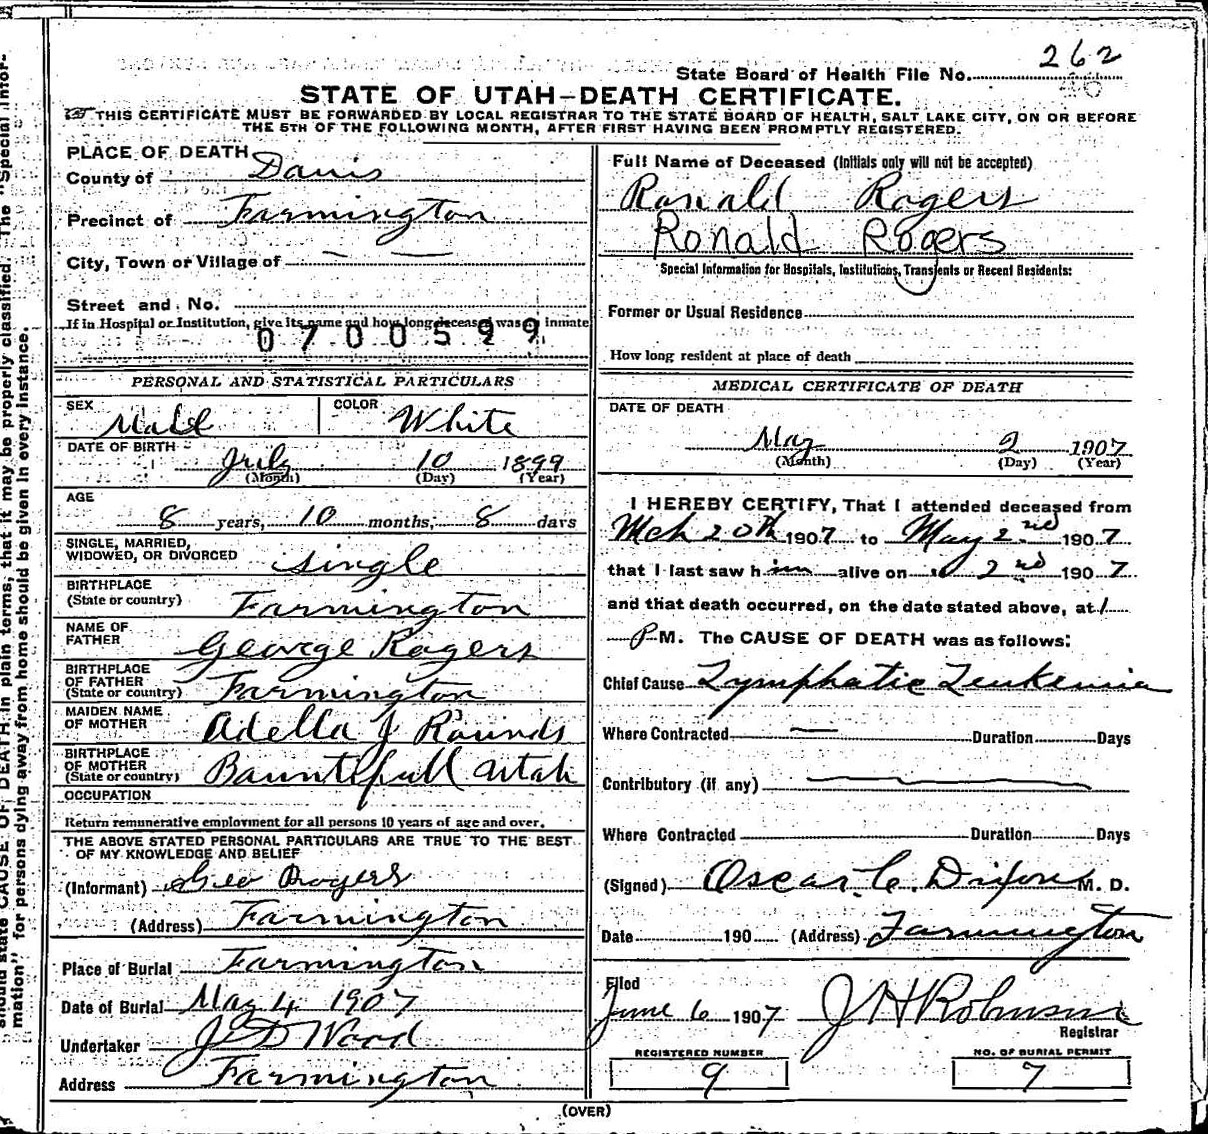 262
State Board of Health File No.
46
STATE OF UTAH—DEATH CERTIFICATE.
THIS CERTIFICATE MUST BE FORWARDED BY LOCAL REGISTRAR TO THE STATE BOARD OF HEALTH, SALT LAKE CITY, ON OR BEFORE
THE 5TH OF THE FOLLOWING MONTH, AFTER FIRST HAVING BEEN PROMPTLY REGISTERED.
PLACE OF DEATH
County of Davis
Precinct of Farmington
City, Town or Village of — —
Street and No.
If in Hospital or Institution, give its name and how long deceased was an inmate
0700599
PERSONAL AND STATISTICAL PARTICULARS
SEX Male COLOR White
DATE OF BIRTH July 10 1899
(Month) (Day) (Year)
AGE
8 years, 10 months, 8 days
SINGLE, MARRIED,
WIDOWED, OR DIVORCED single
BIRTHPLACE
(State or country) Farmington
NAME OF
FATHER George Rogers
BIRTHPLACE
OF FATHER
(State or country) Farmington
MAIDEN NAME
OF MOTHER Adella J Rounds
BIRTHPLACE
OF MOTHER
(State or country) Bauntifull Utah
OCCUPATION
Return remunerative employment for all persons 10 years of age and over.
THE ABOVE STATED PERSONAL PARTICULARS ARE TRUE TO THE BEST
OF MY KNOWLEDGE AND BELIEF
(Informant) Geo Rogers
(Address) Farmington
Place of Burial Farmington
Date of Burial May 4 1907
Undertaker J D Wood
Address Farmington
Full Name of Deceased (Initials only will not be accepted)
Ronald Rogers
Ronald Rogers
Special Information for Hospitals, Institutions, Transients or Recent Residents:
Former or Usual Residence
How long resident at place of death
MEDICAL CERTIFICATE OF DEATH
DATE OF DEATH
May 2 1907
(Month) (Day) (Year)
I HEREBY CERTIFY, That I attended deceased from
Mch 20th 1907 to May 2nd 1907
that I last saw him alive on " 2nd 1907
and that death occurred, on the date stated above, at 1
P M. The CAUSE OF DEATH was as follows:
Chief Cause Lymphatic Leukemia
Where Contracted — Duration Days
Contributory (if any)
Where Contracted Duration Days
(Signed) Oscar C. Dixon M. D.
Date 190 (Address) Farmington
Filed
June 6 1907 J H Robinson
Registrar
REGISTERED NUMBER NO. OF BURIAL PERMIT
9 7
(OVER)
should state CAUSE OF DEATH in plain terms, that it may be properly classified. The "Special Infor-
mation" for persons dying away from home should be given in every instance.